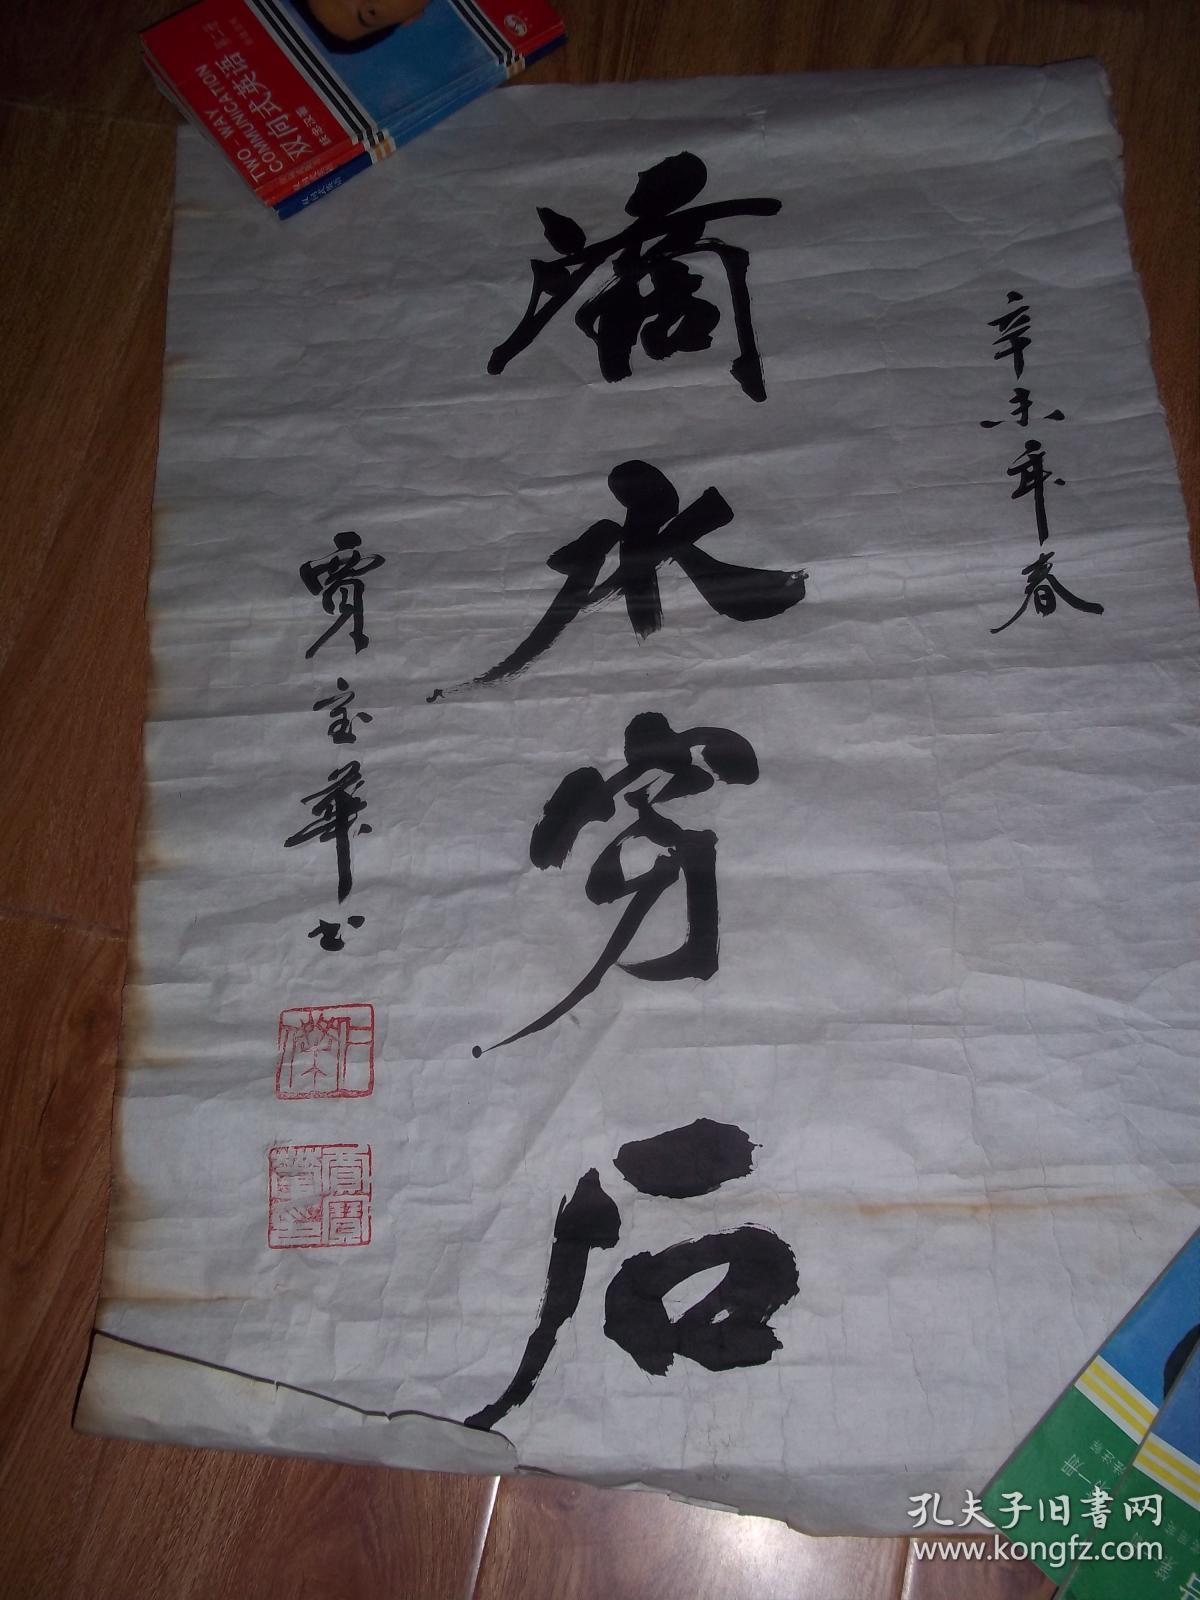 辛未年春
滴水穿石
賈宝華书
賈寶華印
TWO-WAY
COMMUNICATION
双向式英语
孔夫子旧书网
www.kongfz.com